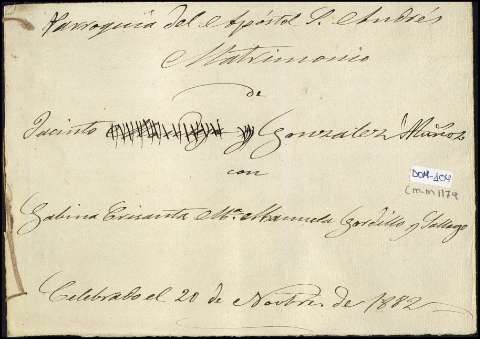 Parroquia del Apóstol S. Andrés
Matrimonio
de
Jacinto y Gonzalez Muñoz
con
DOM-104
Cm-m 1179
Sabina Crisanta Mª Manuela Gordillo y Gallego
Celebrado el 20 de Novbre de 1882